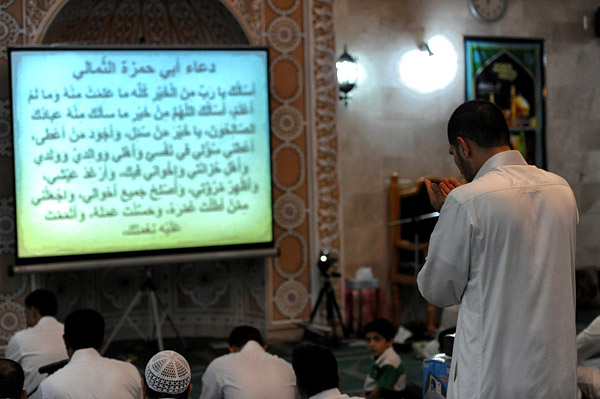 دعاء أبي حمزة الثمالي
أسألك يا رب من الخير كله ما علمت منه وما لم
أعلم، أسألك اللهم من خير ما سألك منه عبادك
الصالحون، يا خير من سئل، وأجود من أعطى،
أعطني سؤلي في نفسي وأهلي ووالدي وولدي
وأهل حزانتي وإخواني فيك، وأرغد عيشي،
وأظهر مروتي، وأصلح جميع أحوالي، واجعلني
ممن أطلت عمره، وحسنت عمله، وأتممت
عليه نعمتك،